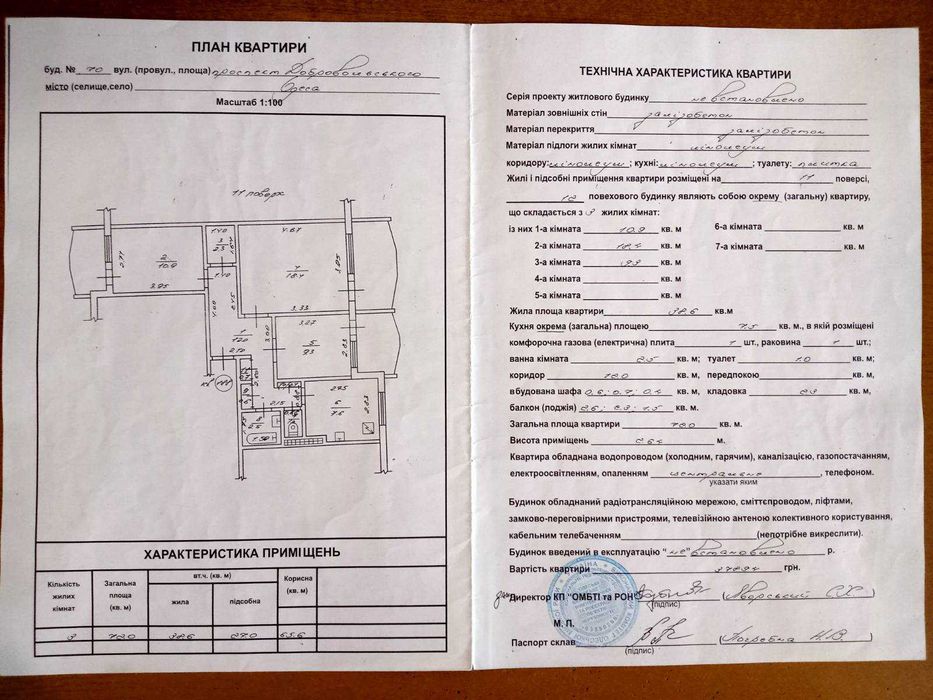 ПЛАН КВАРТИРИ
буд. № 70 вул. (провул., площа) проспект Добровольського
місто (селище,село) Одеса
Масштаб 1:100
11 поверх
1.40
4.67
3
2.3
1.64
2
10.9
2.77
3.95
1.40
4
18.4
3.95
2.45
4.00
3.33
1
12.0
3.00
3.27
5
9.3
2.83
2.70
2.75
2.15
6
7.5
2.83
8
2.5
1.50
ХАРАКТЕРИСТИКА ПРИМІЩЕНЬ
Кількість жилих кімнат
Загальна площа (кв. м)
вт.ч. (кв. м)
жила
підсобна
Корисна (кв. м)
3 72.0 38.6 27.0 65.6
ТЕХНІЧНА ХАРАКТЕРИСТИКА КВАРТИРИ
Серія проекту житлового будинку не встановлено
Матеріал зовнішніх стін залізобетон
Матеріал перекриття залізобетон
Матеріал підлоги жилих кімнат лінолеум
коридору: лінолеум ; кухні: лінолеум ; туалету: плитка
Жилі і підсобні приміщення квартири розміщені на 11 поверсі,
12 повехового будинку являють собою окрему (загальну) квартиру,
що складається з 3 жилих кімнат:
із них 1-а кімната 10.9 кв. м 6-а кімната кв. м
2-а кімната 18.4 кв. м 7-а кімната кв. м
3-а кімната 9.3 кв. м
4-а кімната кв. м
5-а кімната кв. м
Жила площа квартири 38.6 кв.м
Кухня окрема (загальна) площею 7.5 кв. м., в якій розміщені
комфорочна газова (електрична) плита 1 шт., раковина 1 шт.;
ванна кімната 2.5 кв. м; туалет 1.0 кв. м;
коридор 12.0 кв. м, передпокою кв. м,
вбудована шафа 0,6; 0,7; 0,4 кв. м, кладовка 2.3 кв. м,
балкон (лоджія) 2.6; 2.3; 1.5 кв. м.
Загальна площа квартири 72.0 кв. м.
Висота приміщень 2.64 м.
Квартира обладнана водопроводом (холодним, гарячим), каналізацією, газопостачанням,
електроосвітленням, опаленням централне , телефоном.
указати яким
Будинок обладнаний радіотрансляційною мережою, сміттєпроводом, ліфтами,
замково-переговірними пристроями, телевізійною антеною колективного користування,
кабельним телебаченням (непотрібне викреслити).
Будинок введений в експлуатацію “ не” встановлено р.
Вартість квартири 37894 грн.
Директор КП “ОМБТІ та РОН”
(підпис)
М. П.
Паспорт склав (Погребна Н.В.)
(підпис)